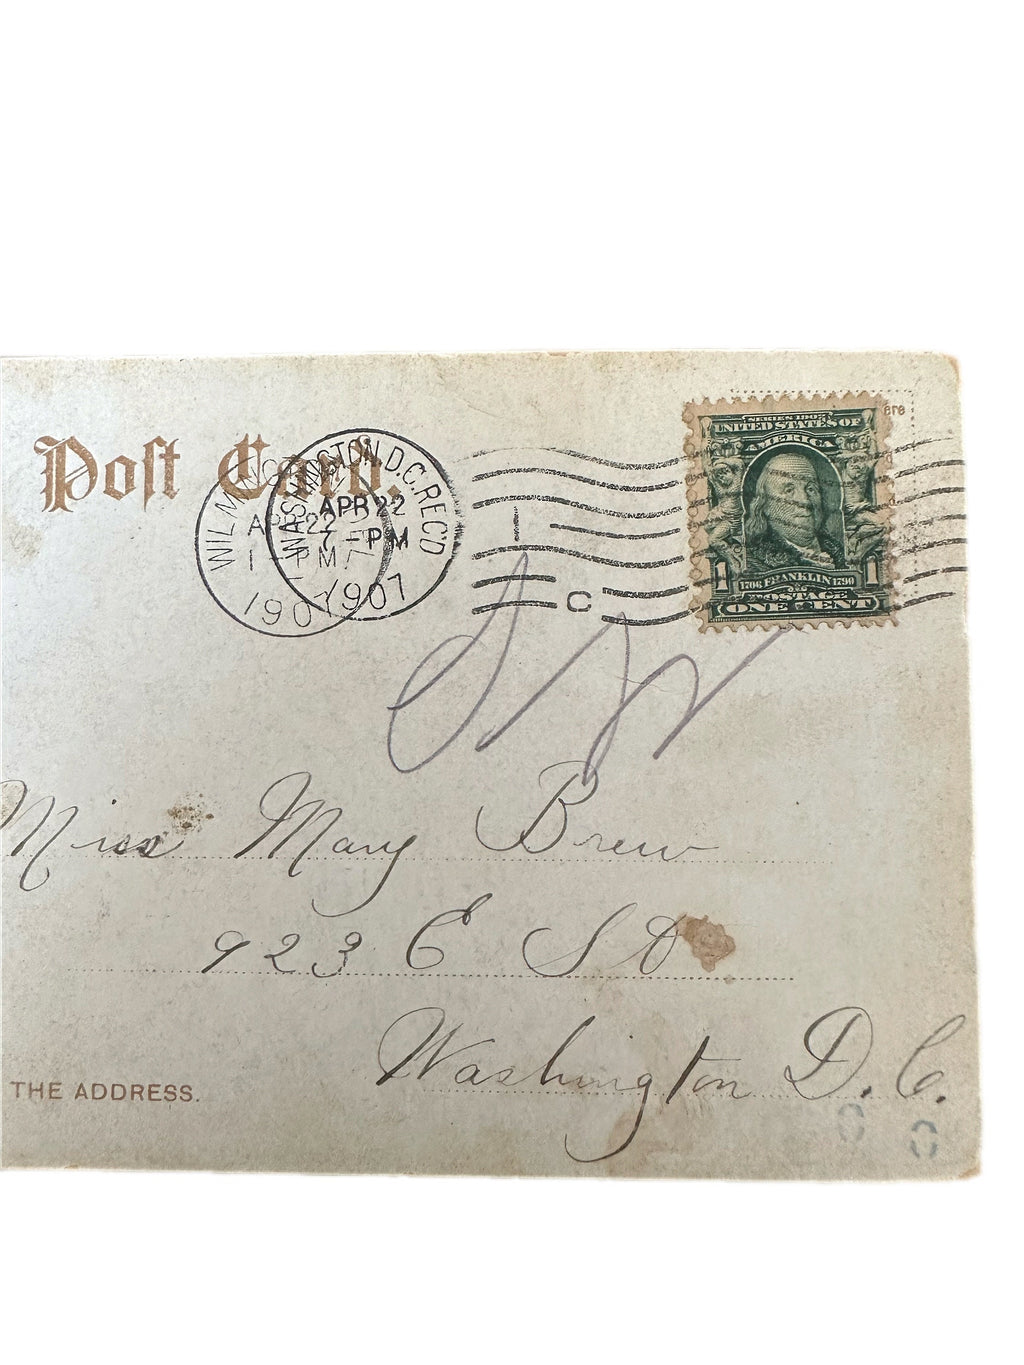 Post Card.
WILMING
APR 22
1 PM
1907
WASHINGTON, D.C. REC'D
APR 22
7 - PM
1907
1
C
SERIES 1902
UNITED STATES OF
AMERICA
1706 FRANKLIN 1790
1 1
POSTAGE
ONE CENT
Miss Mary Brew
923 E St
Washington D.C.
THE ADDRESS.
0
0